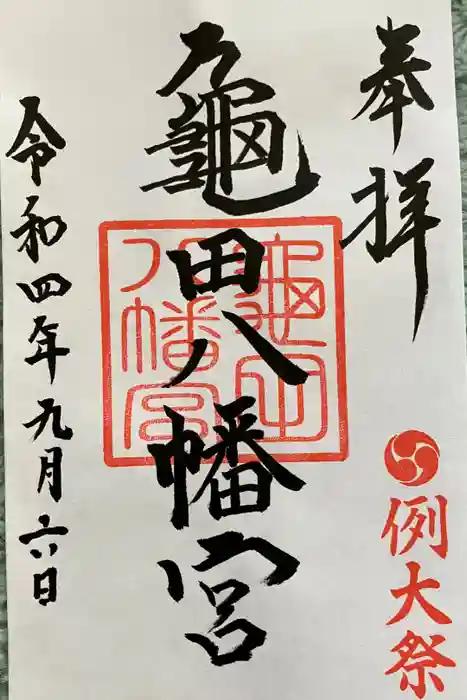 奉拝
例大祭
龜田八幡宮
龜田八幡宮
令和四年九月六日